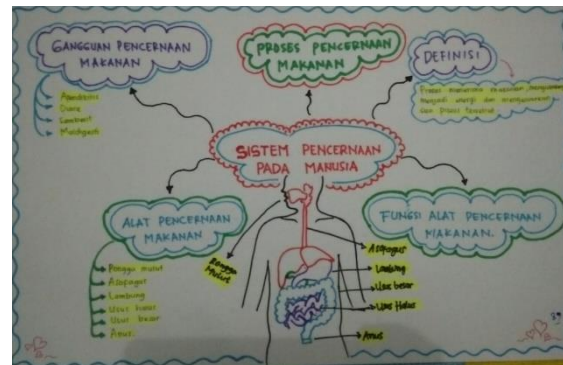 GANGGUAN PENCERNAAN
MAKANAN
Apendisitis
Diare
Sembelit
PROSES PENCERNAAN
MAKANAN
DEFINISI
menjadi energi dan
SISTEM PENCERNAAN
PADA MANUSIA
ALAT PENCERNAAN
MAKANAN
Rongga mulut
Asopagus
Lambung
Usus halus
Usus besar
Anus.
FUNGSI ALAT PENCERNAAN
MAKANAN.
Rongga
Mulut
Asopagus
Lambung
Usus besar
Usus Halus
Anus